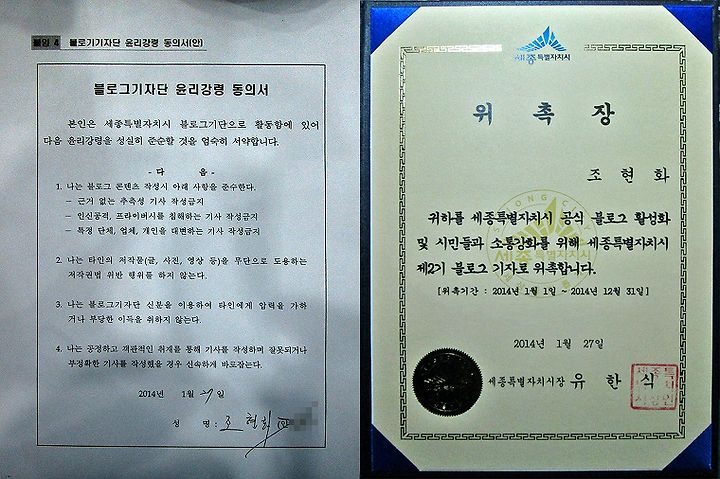 붙임 4 블로기기자단 윤리강령 동의서(안)
블로그기자단 윤리강령 동의서
본인은 세종특별자치시 블로그기단으로 활동함에 있어
다음 윤리강령을 성실히 준순할 것을 엄숙히 서약합니다.
- 다 음 -
1. 나는 블로그 콘텐츠 작성시 아래 사항을 준수한다.
- 근거 없는 추측성 기사 작성금지
- 인신공격, 프라이버시를 침해하는 기사 작성금지
- 특정 단체, 업체, 개인을 대변하는 기사 작성금지
2. 나는 타인의 저작물(글, 사진, 영상 등)을 무단으로 도용하는
저작권법 위반 행위를 하지 않는다.
3. 나는 블로그기자단 신분을 이용하여 타인에게 압력을 가하
거나 부당한 이득을 취하지 않는다.
4. 나는 공정하고 객관적인 취재를 통해 기사를 작성하며 잘못되거나
부정확한 기사를 작성했을 경우 신속하게 바로잡는다.
2014년 1월 27일
성 명 : 조 현화
세종특별자치시
위 촉 장
조 현 화
귀하를 세종특별자치시 공식 블로그 활성화
및 시민들과 소통강화를 위해 세종특별자치시
제2기 블로그 기자로 위촉합니다.
[위촉기간 : 2014년 1월 1일 ~ 2014년 12월 31일]
2014년 1월 27일
세종특별자치시장 유 한 식